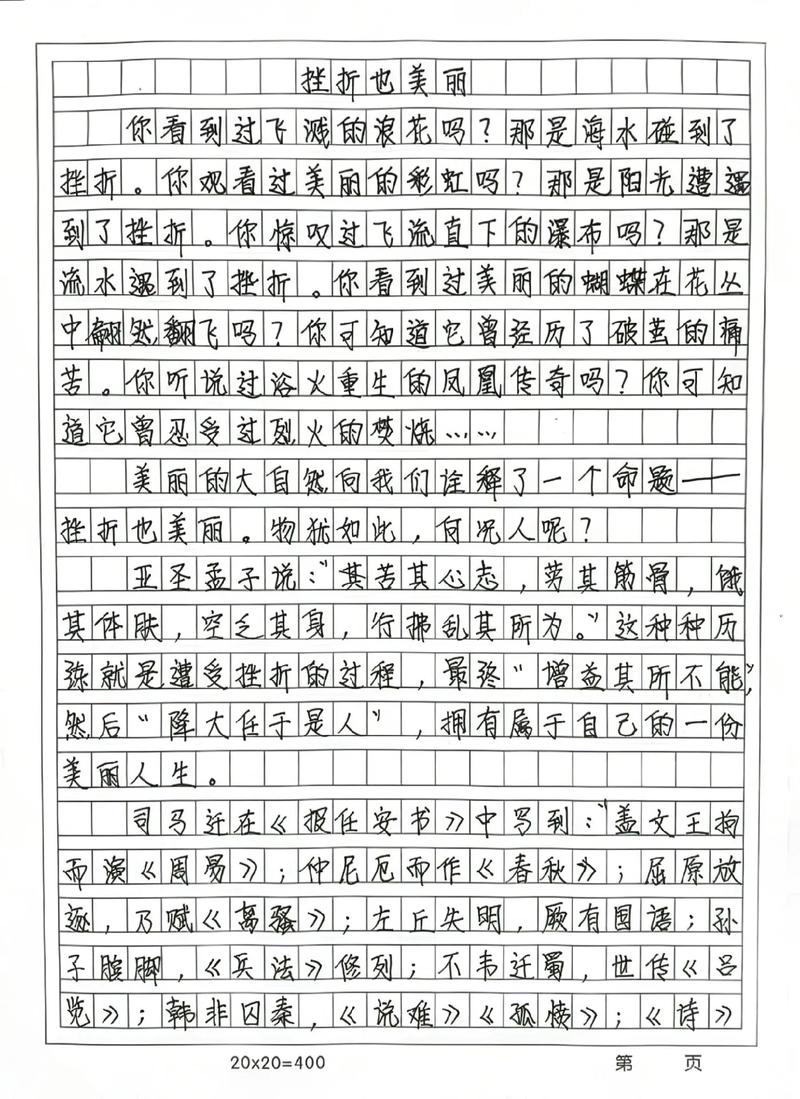 挫折也美丽
你看到过飞溅的浪花吗？那是海水碰到了
挫折。你观看过美丽的彩虹吗？那是阳光遭遇
到了挫折。你惊叹过飞流直下的瀑布吗？那是
流水遇到了挫折。你看到过美丽的蝴蝶在花丛
中翩然翻飞吗？你可知道它曾经历了破茧的痛
苦。你听说过浴火重生的凤凰传奇吗？你可知
道它曾忍受过烈火的焚烧……
美丽的大自然向我们诠释了一个命题——
挫折也美丽。物犹如此，何况人呢？
亚圣孟子说：“其苦其心志，劳其筋骨，饿
其体肤，空乏其身，行拂乱其所为。”这种种历
练就是遭受挫折的过程，最终“增益其所不能”，
然后“降大任于是人”，拥有属于自己的一份
美丽人生。
司马迁在《报任安书》中写到：“盖文王拘
而演《周易》；仲尼厄而作《春秋》；屈原放
逐，乃赋《离骚》；左丘失明，厥有国语；孙
子膑脚，《兵法》修列；不韦迁蜀，世传《吕
览》；韩非囚秦，《说难》《孤愤》；《诗》
20×20=400
第 页